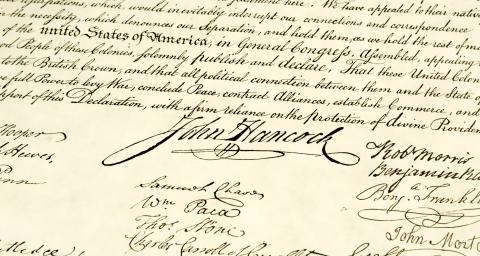 which would inevitably interrupt our connections and correspondence
the necessity, which denounces our Separation, and hold them, as we hold the rest of
of the united States of America, in General Congress, Assembled, appealing
People of these Colonies, solemnly publish and declare, That these United
to the British Crown, and that all political connection between them and the State of
full Power to levy War, conclude Peace, contract Alliances, establish Commerce, and
of this Declaration, with a firm reliance on the protection of divine
John Hancock
Hooper
Hewes,
Penn
Rob^t Morris
Benjamin
Benj^a Frankl
John Mort
Samuel Chase
W^m Paca
Tho^s Stone
Charles Carroll of